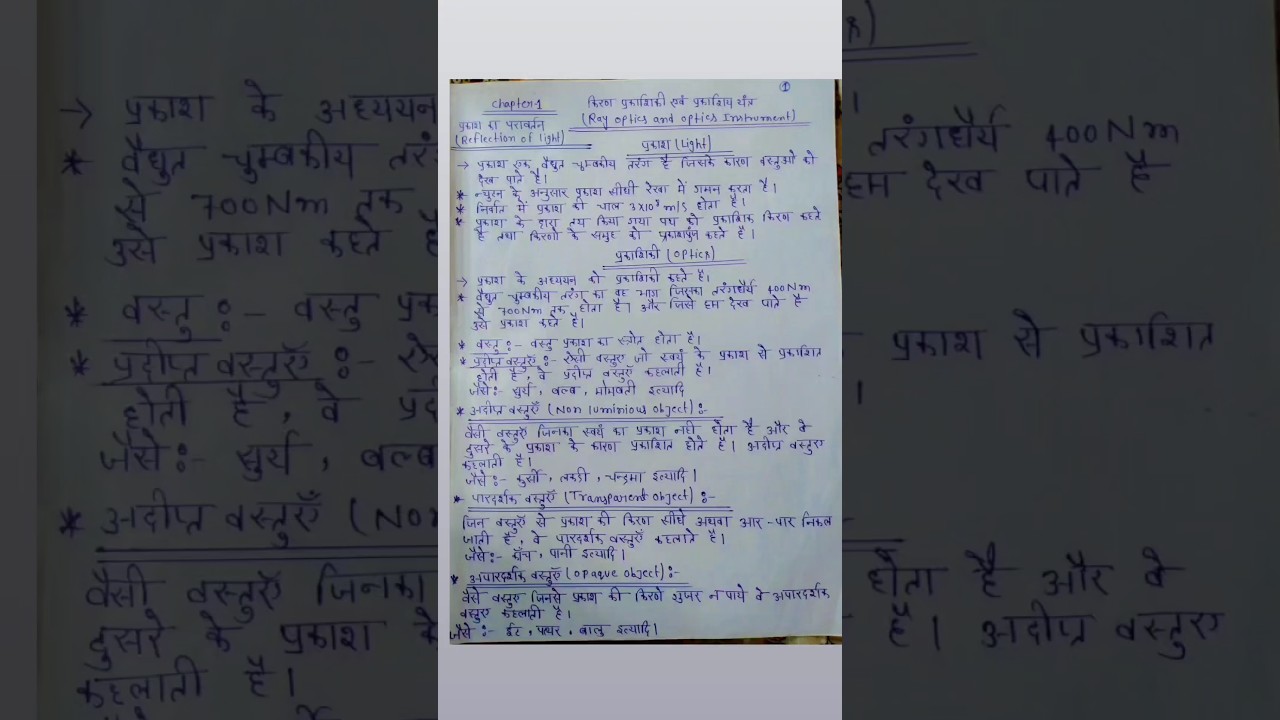 ①
Chapter-1
किरण प्रकाशिकी एवं प्रकाशिय यंत्र
(Ray optics and optics Instrument)
प्रकाश का परावर्तन
(Reflection of light)
प्रकाश (Light)
→ प्रकाश एक वैधुत चुम्बकीय तरंग है जिसके कारण वस्तुओं को
देख पाते है।
* न्युटन के अनुसार प्रकाश सीधी रेखा में गमन करता है।
* निर्वात में प्रकाश की चाल 3×10⁸ m/s होता है।
* प्रकाश के द्वारा तय किया गया पथ को प्रकाशिक किरण कहते
है तथा किरणों के समुह को प्रकाशपुंज कहते है।
प्रकाशिकी (Optics)
→ प्रकाश के अध्ययन को प्रकाशिकी कहते है।
* वैधुत चुम्बकीय तरंग का वह भाग जिसका तरंगधैर्य 400Nm
से 700Nm तक होता है। और जिसे हम देख पाते है
उसे प्रकाश कहते है।
* वस्तु :- वस्तु प्रकाश का स्त्रोत होता है।
* प्रदीप्त वस्तुएँ :- ऐसी वस्तुए जो स्वयं के प्रकाश से प्रकाशित
होती है, वे प्रदीप्त वस्तुएँ कहलाती है।
जैसे:- सुर्य, बल्ब, मोमबती इत्यादि
* अदीप्त वस्तुएँ (Non luminious object):-
वैसी वस्तुएँ जिनका स्वयं का प्रकाश नही होता है और वे
दुसरे के प्रकाश के कारण प्रकाशित होते है। अदीप्त वस्तुए
कहलाती है।
जैसे:- कुर्सी, लकडी, चन्द्रमा इत्यादि।
* पारदर्शक वस्तुएँ (Transparent object) :-
जिन वस्तुएँ से प्रकाश की किरण सीधे अथवा आर-पार निकल
जाती है, वे पारदर्शक वस्तुएँ कहलाते है।
जैसे:- काँच, पानी इत्यादि।
* अपारदर्शक वस्तुएँ (opaque object):-
वैसे वस्तुए जिनसे प्रकाश की किरणे गुजर न पाये वे अपारदर्शक
वस्तुए कहलाती है।
जैसे :- ईट, पत्थर, बालु इत्यादि।